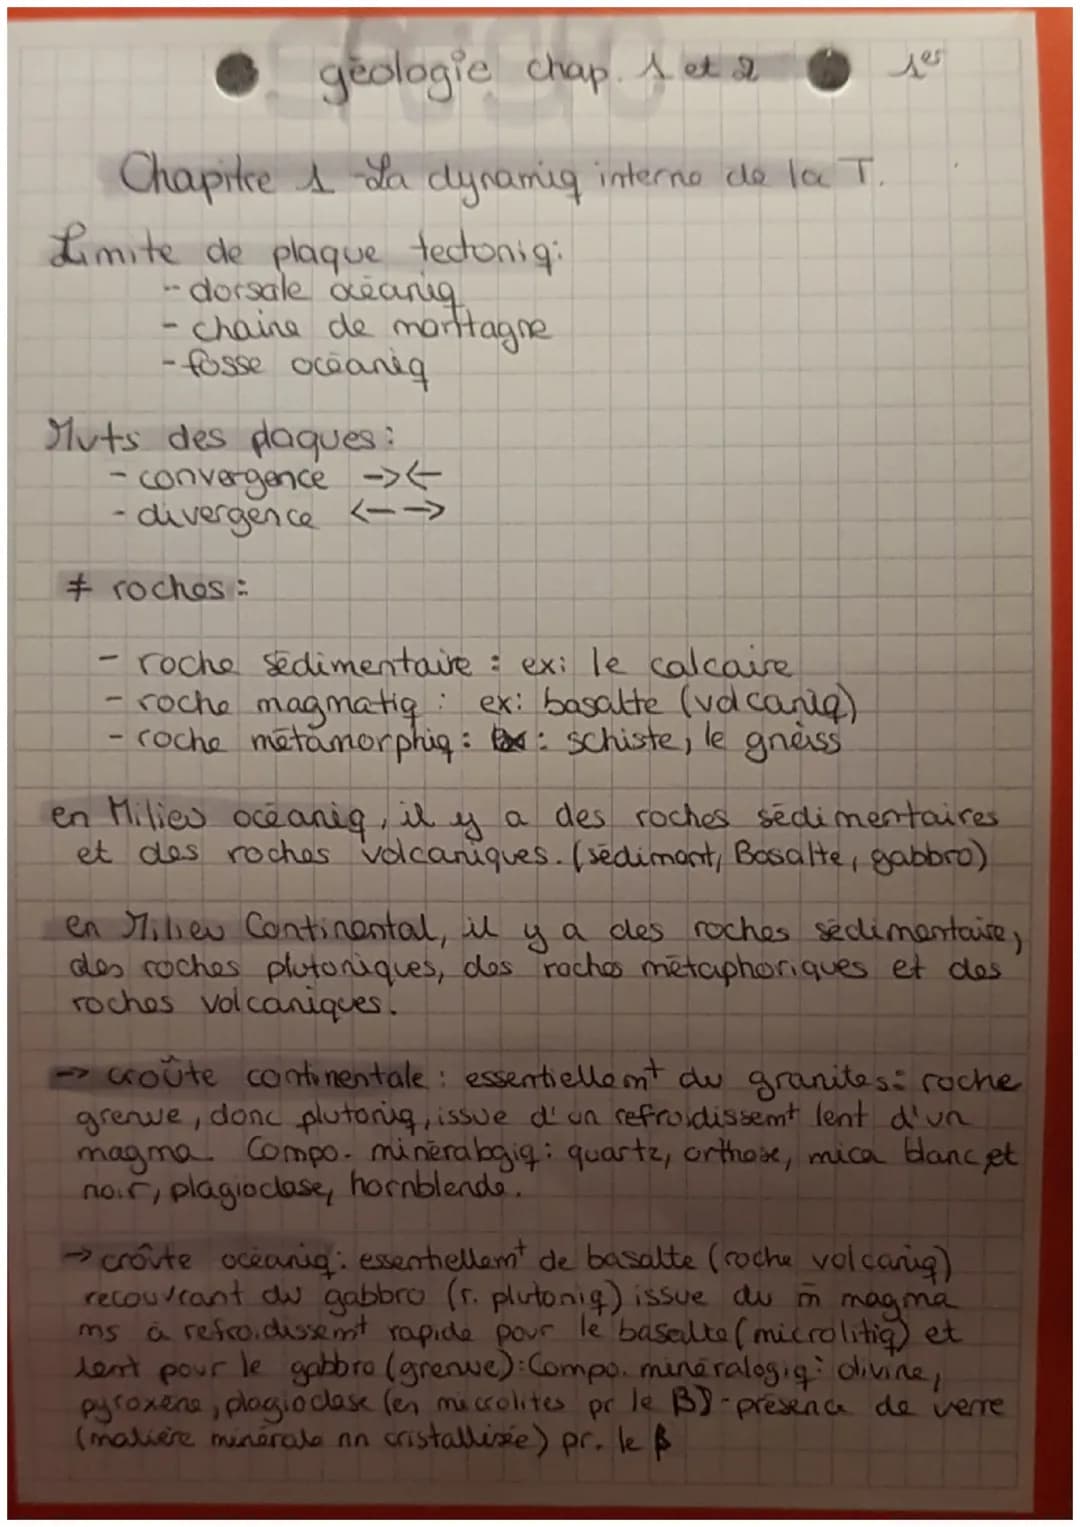 géologie chap. 1 et 2 1es
Chapitre 1 - La dynamiq interne de la T.
Limite de plaque tectoniq:
- dorsale océaniq
- chaine de montagne
- fosse océaniq
Mvts des plaques:
- convergence -><-
- divergence <- ->
≠ roches:
- roche sédimentaire : ex: le calcaire
- roche magmatiq : ex: basalte (volcaniq)
- roche métamorphiq : ex: schiste, le gneiss
en Milieu océaniq, il y a des roches sédimentaires
et des roches volcaniques. (sédiment, Basalte, gabbro)
en Milieu Continental, il y a des roches sédimentaire,
des roches plutoniques, des roches métaphoriques et des
roches volcaniques.
-> croûte continentale : essentiellemt du granites: roche
grenue, donc plutoniq, issue d'un refroidissemt lent d'un
magma. Compo. minéralogiq: quartz, orthose, mica blanc et
noir, plagioclase, hornblende.
-> croûte océaniq: essentiellemt de basalte (roche volcaniq)
recouvrant du gabbro (r. plutoniq) issue du m̄ magma
ms à refroidissemt rapide pour le basalte (microlitiq) et
lent pour le gabbro (grenue): Compo. minéralogiq: olivine,
pyroxène, plagioclase (en microlites pr le B) - présence de verre
(matière minérale nn cristallisée) pr. le β